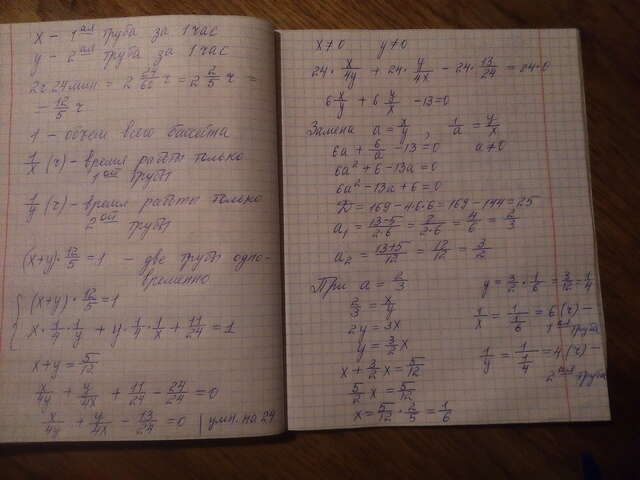 x - 1ая труба за 1 час
y - 2ая труба за 1 час
2ч 24 мин = 2 24/60 ч = 2 2/5 ч =
= 12/5 ч
1 - объем всего бассейна
1/x (ч) - время работы только
1ой трубы
1/y (ч) - время работы только
2ой трубы
(x+y)·12/5=1 - две трубы одно-
временно
{ (x+y)·12/5=1
x·1/4·1/y + y·1/4·1/x + 11/24 = 1
x+y = 5/12
x/4y + y/4x + 11/24 - 24/24 = 0
x/4y + y/4x - 13/24 = 0 | умн. на 24
x≠0 y≠0
24·x/4y + 24·y/4x - 24·13/24 = 24·0
6x/y + 6y/x - 13=0
Замена a = x/y , 1/a = y/x
6a + 6/a - 13=0 a≠0
6a² + 6 - 13a = 0
6a² - 13a + 6 = 0
D = 169 - 4·6·6 = 169 - 144 = 25
a₁ = 13-5/2·6 = 8/2·6 = 4/6 = 2/3
a₂ = 13+5/12 = 18/12 = 3/2
При a = 2/3
2/3 = x/y
2y = 3x
y = 3/2 x
x + 3/2 x = 5/12
5/2 x = 5/12
x = 5/12 · 2/5 = 1/6
y = 3/2 · 1/6 = 3/12 = 1/4
1/x = 1/1/6 = 6 (ч) -
1ая труба
1/y = 1/1/4 = 4 (ч) -
2ая труба